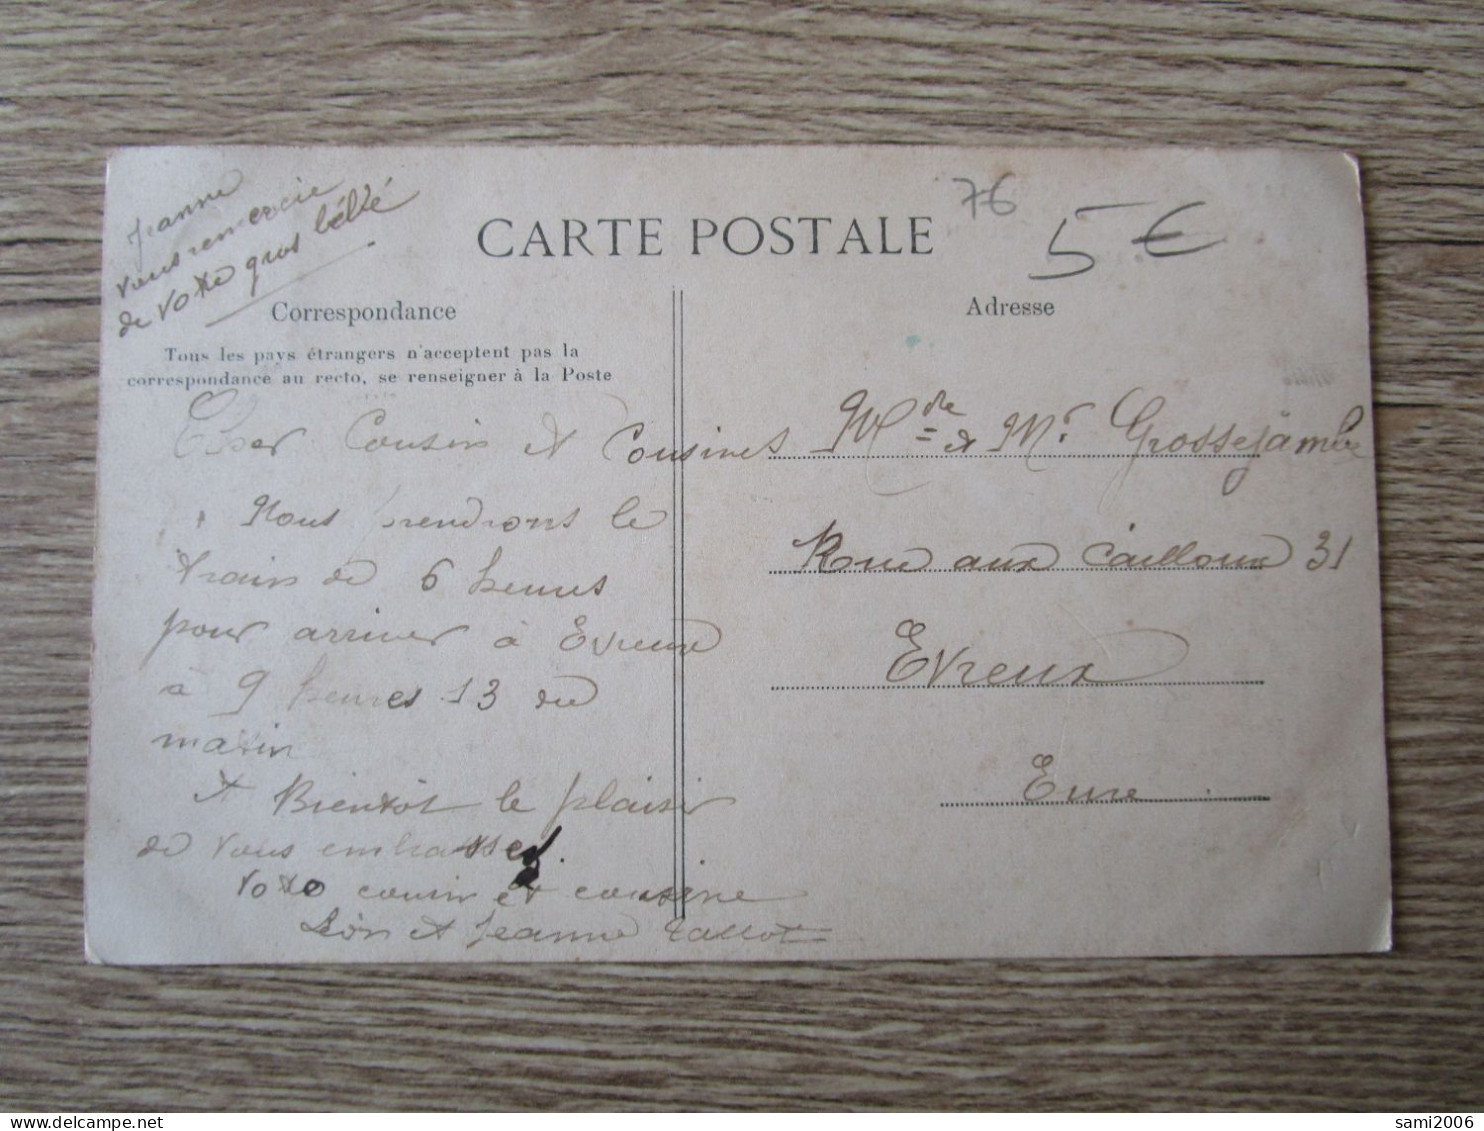 Jeanne
vous remercie
de votre gros bébé
CARTE POSTALE
76
5 €
Correspondance
Adresse
Tous les pays étrangers n'acceptent pas la
correspondance au recto, se renseigner à la Poste
Cher Cousin et Cousines
Nous prendrons le
train de 6 heures
pour arriver à Evreux
a 9 heures 13 du
matin
A Bientôt le plaisir
de vous embrasser.
Votre cousin et cousine
Léon et Jeanne
Mde & Mr Grossejambe
Rue aux Cailloux 31
Evreux
Eure
sami2006